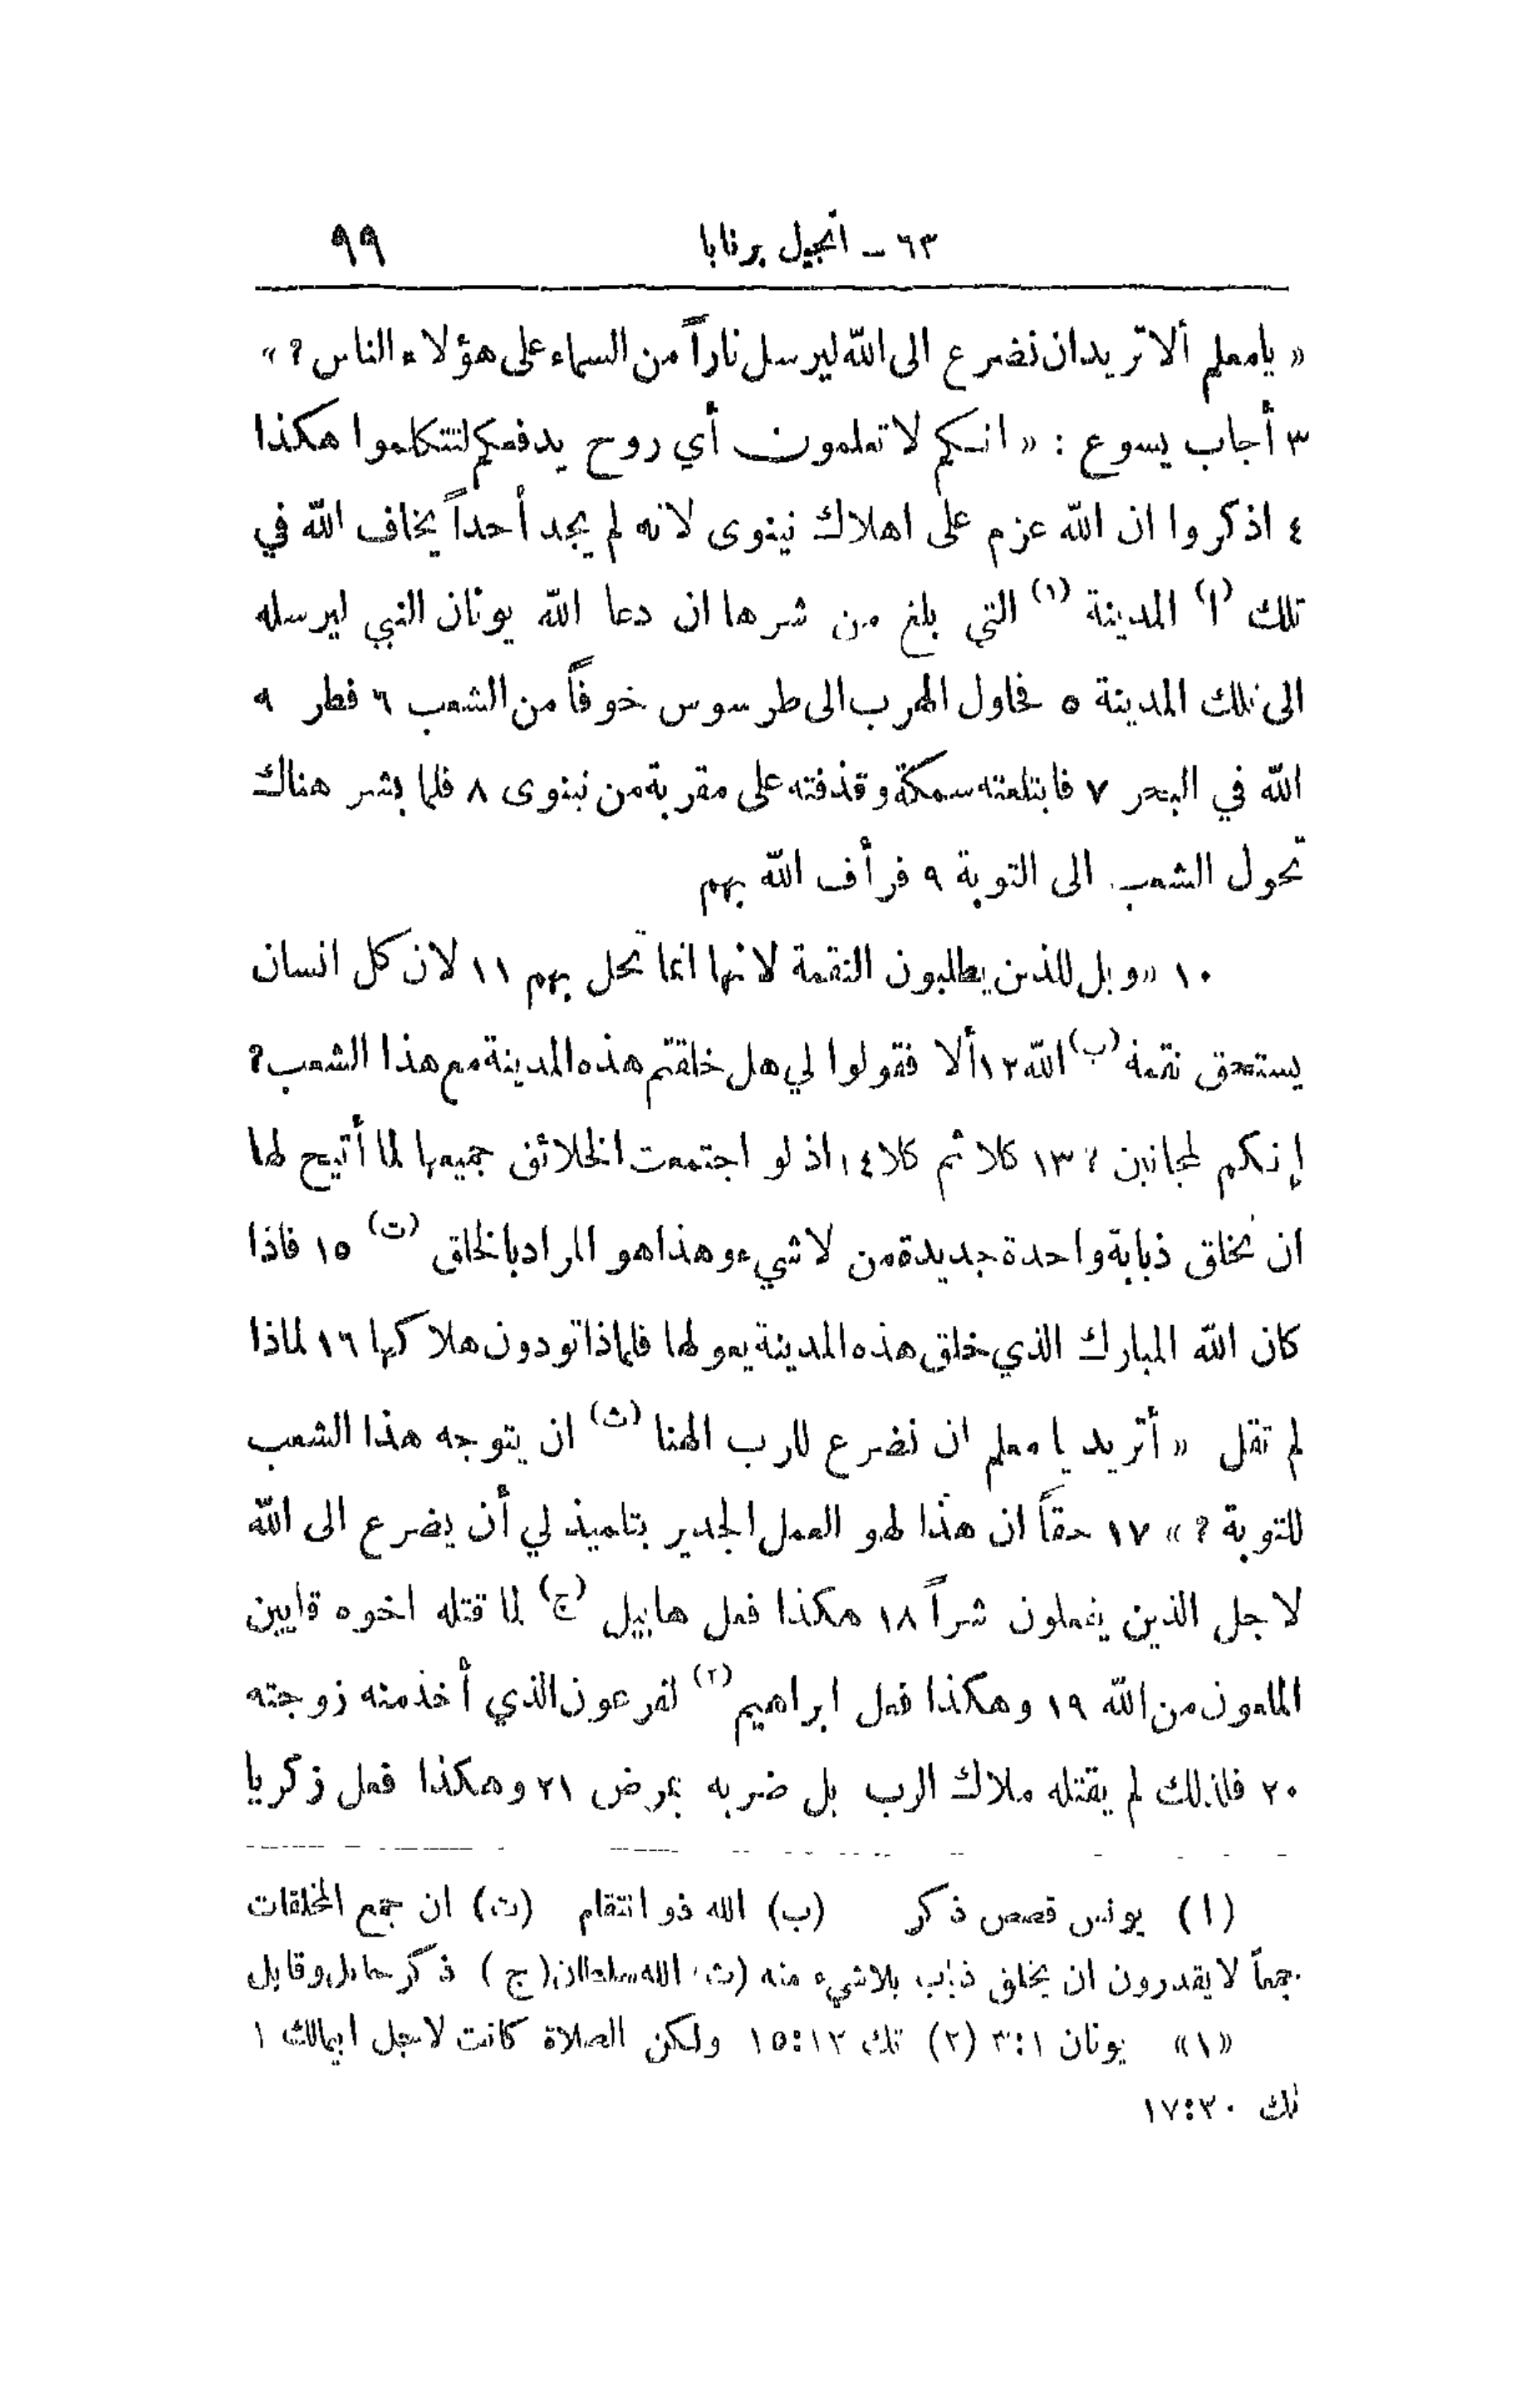 ٦٣ - انجيل برنابا ٩٩
« يا معلم ألا تريد ان نضرع الى الله ليرسل ناراً من السماء على هؤلاء الناس ؟ »
٣ أجاب يسوع : « انكم لا تعلمون أي روح يدفعكم لتتكلموا هكذا
٤ اذكروا ان الله عزم على اهلاك نينوى لانه لم يجد أحداً يخاف الله في
تلك (ا) المدينة (١) التي بلغ من شرها ان دعا الله يونان النبي ليرسله
الى تلك المدينة ٥ فحاول الهرب الى طرسوس خوفاً من الشعب ٦ فطرحه
الله في البحر ٧ فابتلعته سمكة وقذفته على مقربة من نينوى ٨ فلما بشر هناك
تحول الشعب الى التوبة ٩ فرأف الله بهم
١٠ « ويل للذين يطلبون النقمة لانها انما تحل بهم ١١ لان كل انسان
يستحق نقمة (ب) الله ١٢ ألا فقولوا لي هل خلقتم هذه المدينة مع هذا الشعب ؟
إنكم لمجانين ؟ ١٣ كلا ثم كلا ١٤ اذ لو اجتمعت الخلائق جميعها لما أتيح لها
ان تخلق ذبابة واحدة جديدة من لا شيء وهذا هو المراد بالخلق (ت) ١٥ فاذا
كان الله المبارك الذي خلق هذه المدينة يعولها فلماذا تودون هلاكها ١٦ لماذا
لم تقل « أتريد يا معلم ان نضرع للرب الهنا (ث) ان يتوجه هذا الشعب
للتوبة ؟ » ١٧ حقاً ان هذا لهو العمل الجدير بتلميذ لي أن يضرع الى الله
لاجل الذين يفعلون شراً ١٨ هكذا فعل هابيل (ج) لما قتله اخوه قايين
الملعون من الله ١٩ وهكذا فعل ابراهيم (٢) لفرعون الذي أخذ منه زوجته
٢٠ فلذلك لم يقتله ملاك الرب بل ضربه بمرض ٢١ وهكذا فعل زكريا
(ا) يونس قصص ذكر (ب) الله ذو انتقام (ت) ان جمع المخلقات
جمعاً لا يقدرون ان يخلق ذباب بلاشيء منه (ث) الله سلطان (ج) ذكر هابل وقابل
«١» يونان ١:٣ (٢) تك ١٢:١٥ ولكن الصلاة كانت لاجل ابيمالك ١
تك ٢٠:١٧